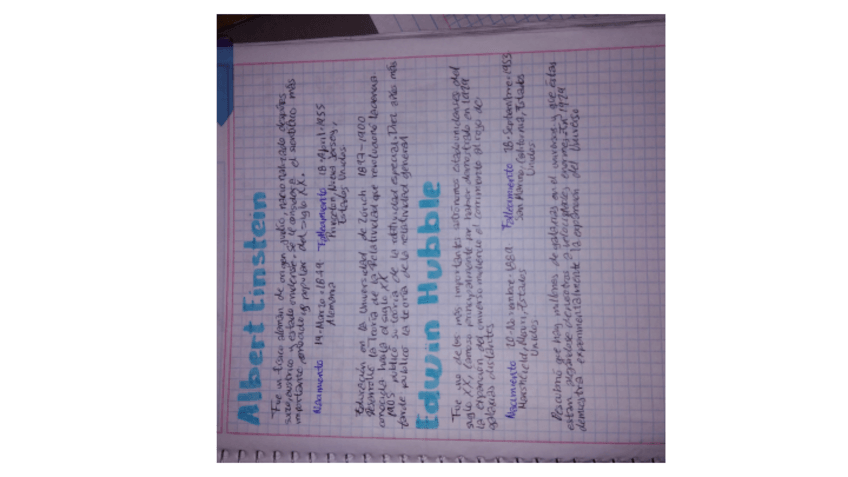 Albert Einstein
Fue un físico alemán de origen judío, nacionalizado después
suizo, austriaco y estadounidense. Se le considera el científico más
importante, conocido y popular del siglo XX.
Nacimiento 14-Marzo-1879 Fallecimiento 18-Abril-1955
Alemania Princeton, Nueva Jersey,
Estados Unidos
Educación en la Universidad de Zúrich 1897-1900
desarrolló la Teoría de la Relatividad que revolucionó la ciencia
conocida hasta el siglo XX
publicó su teoría de la especial. Diez años más
tarde publicó la teoría de la relatividad general
Edwin Hubble
Fue uno de los más importantes astrónomos estadounidenses del
siglo XX, famoso principalmente por haber demostrado en 1929
la expansión del universo midiendo el corrimiento al rojo de
galaxias distantes
Nacimiento 20-Noviembre-1889 Fallecimiento 28-Septiembre-1953
Marshfield, Estados San Marino, California, Estados
Unidos Unidos
Descubrió que hay millones de galaxias en el universo y que éstas
están alejándose de nosotros a velocidades enormes. En 1929
demuestra experimentalmente la expansión del Universo